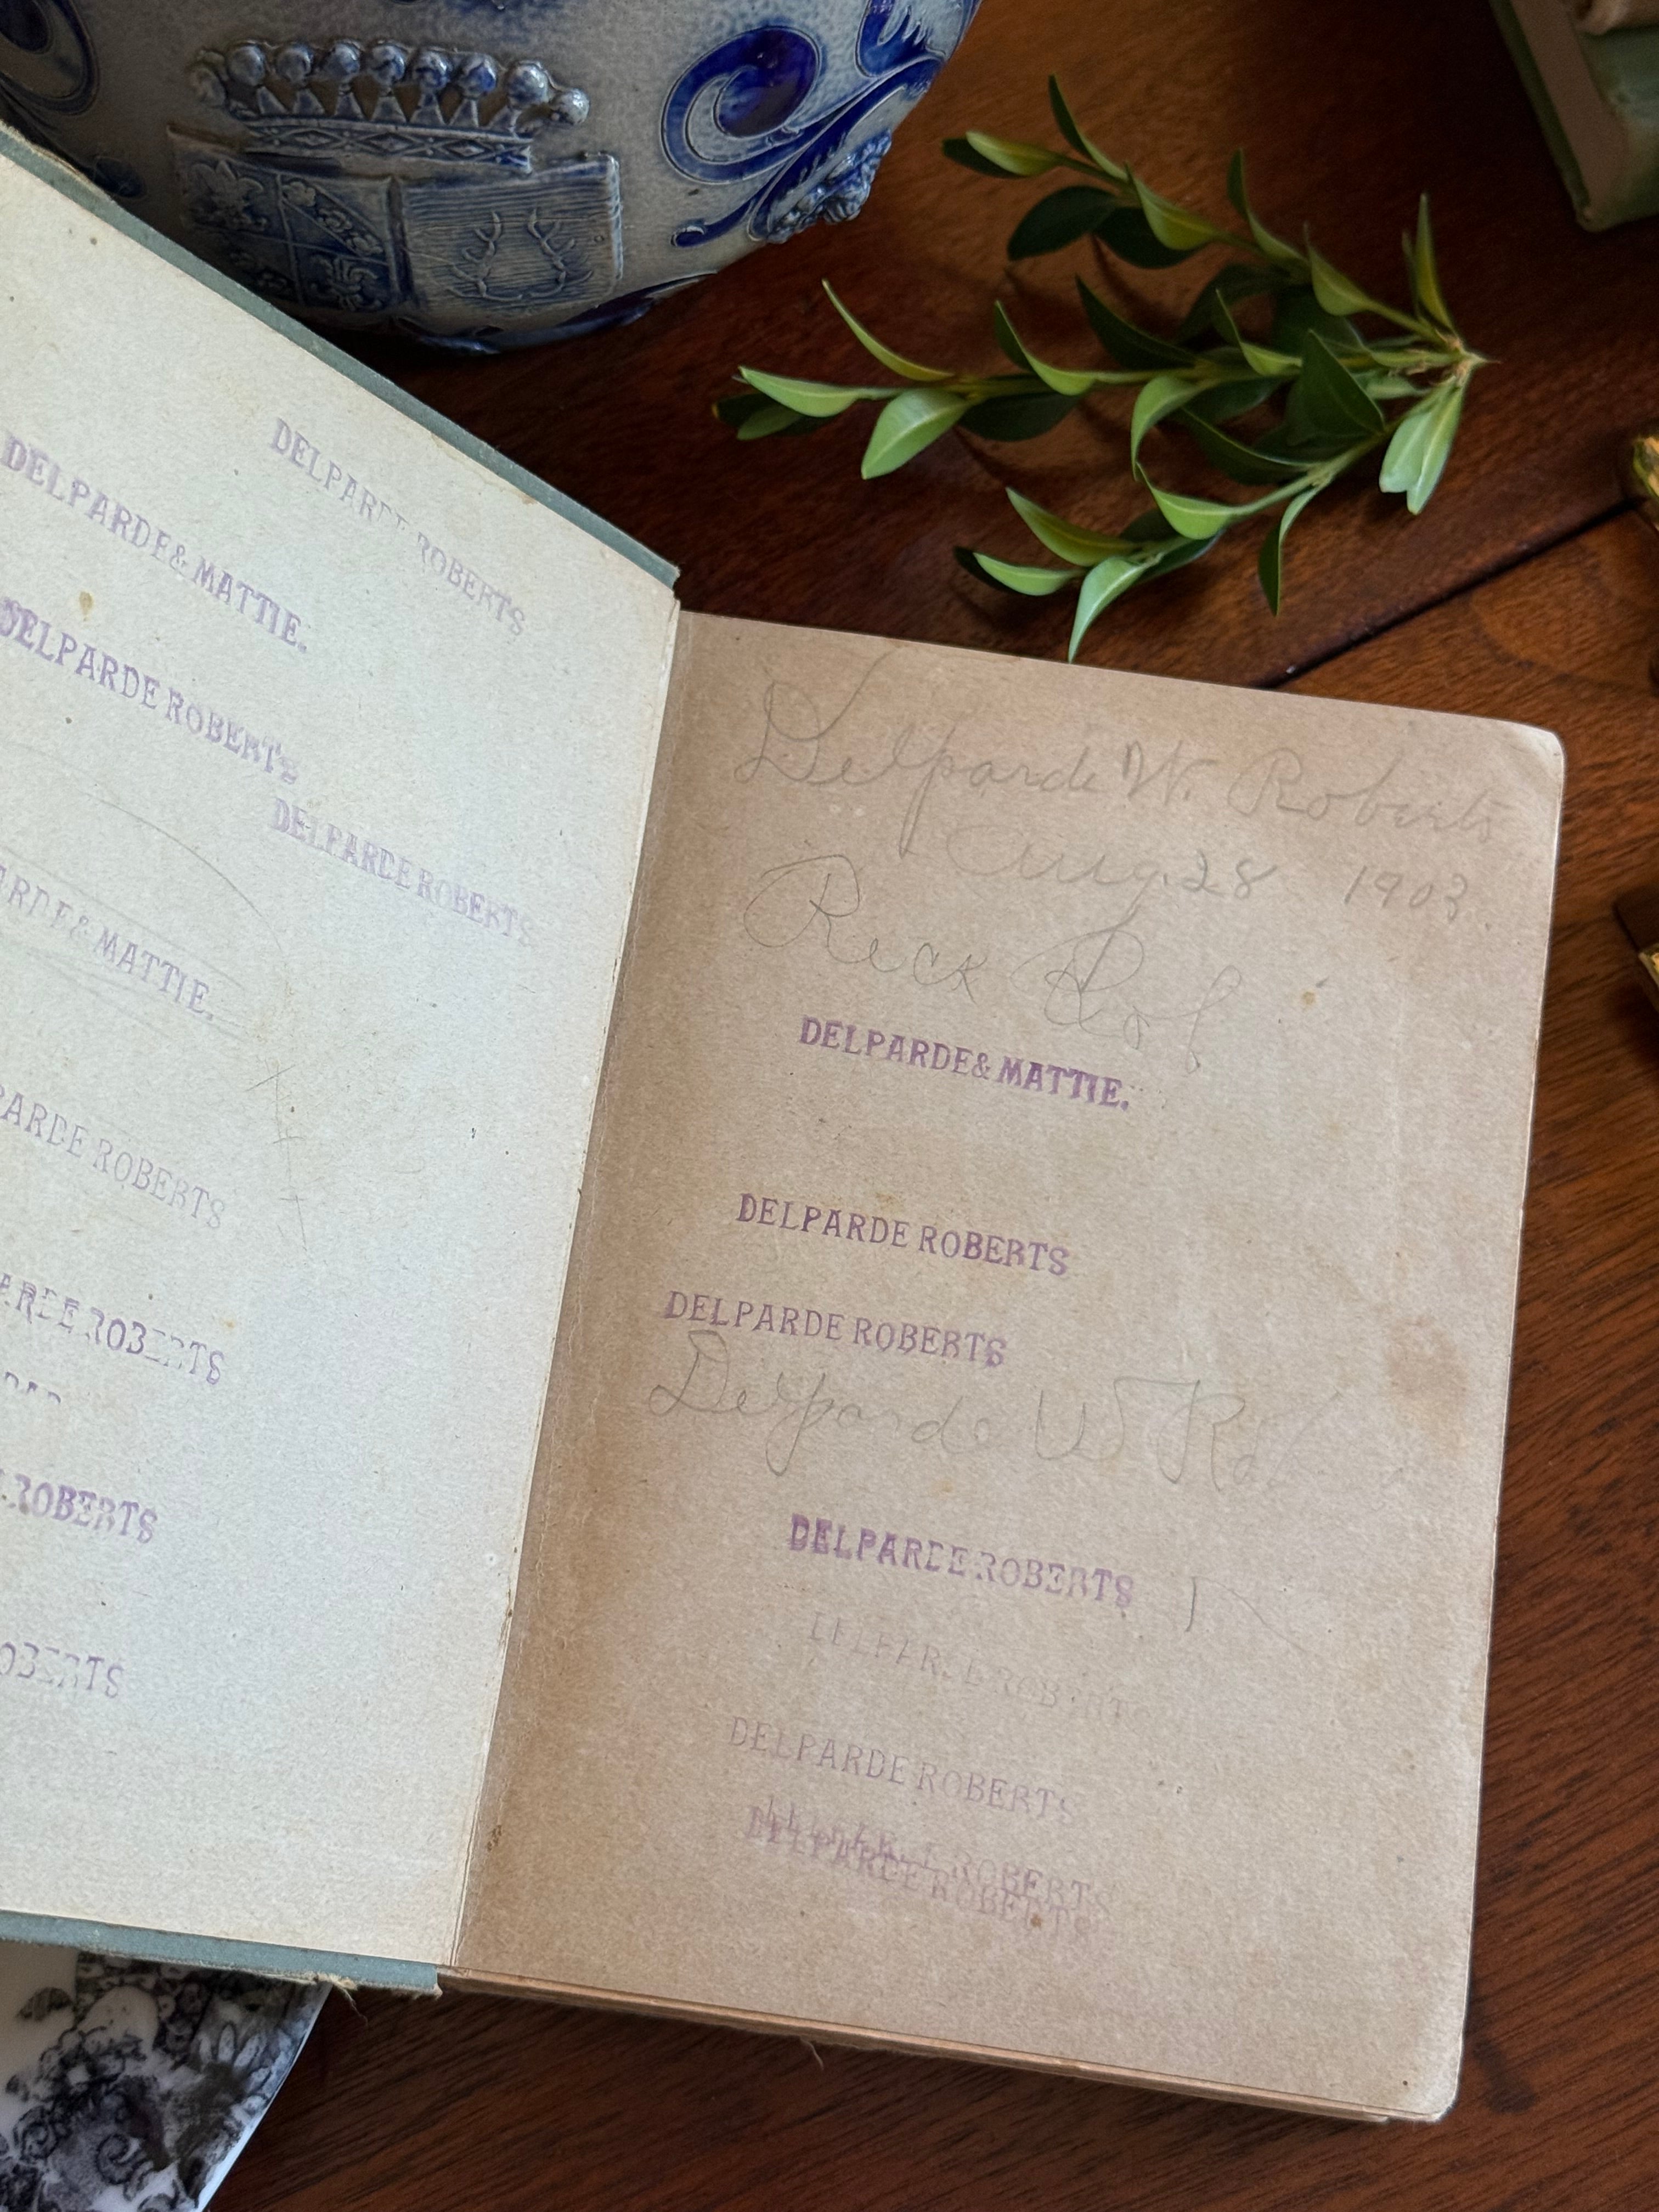 DELPARDE ROBERTS
DELPARDE & MATTIE.
DELPARDE ROBERTS
DELPARDE ROBERTS
ARDE & MATTIE.
PARDE ROBERTS
ARDE ROBERTS
ROBERTS
OBERTS
Delparde W. Roberts
Aug. 28 1903
Reck Rob
DELPARDE & MATTIE.
DELPARDE ROBERTS
DELPARDE ROBERTS
Delparde W Rob
DELPARDE ROBERTS
DELPARDE ROBERTS
DELPARDE ROBERTS
ROBERTS
DELPARDE ROBERTS